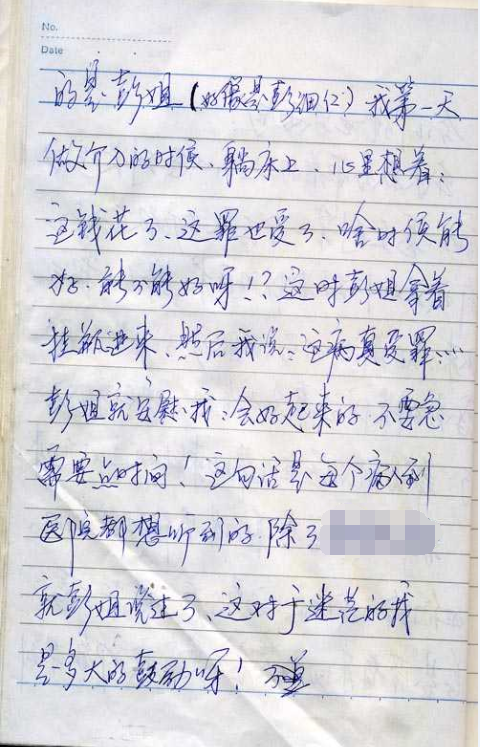 No.
Date
的是彭姐（好像是彭细仁）我第一天
做介入的时候、躺床上、心里想着：
这钱花了、这罪也受了、啥时候能
好、能不能好呀！？这时彭姐拿着
挂瓶进来、然后我说：这病真受罪……
彭姐就安慰我：会好起来的 不要急
需要点时间！这句话是每个病人到
医院都想听到的、除了
就彭姐说过了、这对于迷茫的我
是多大的鼓励呀！